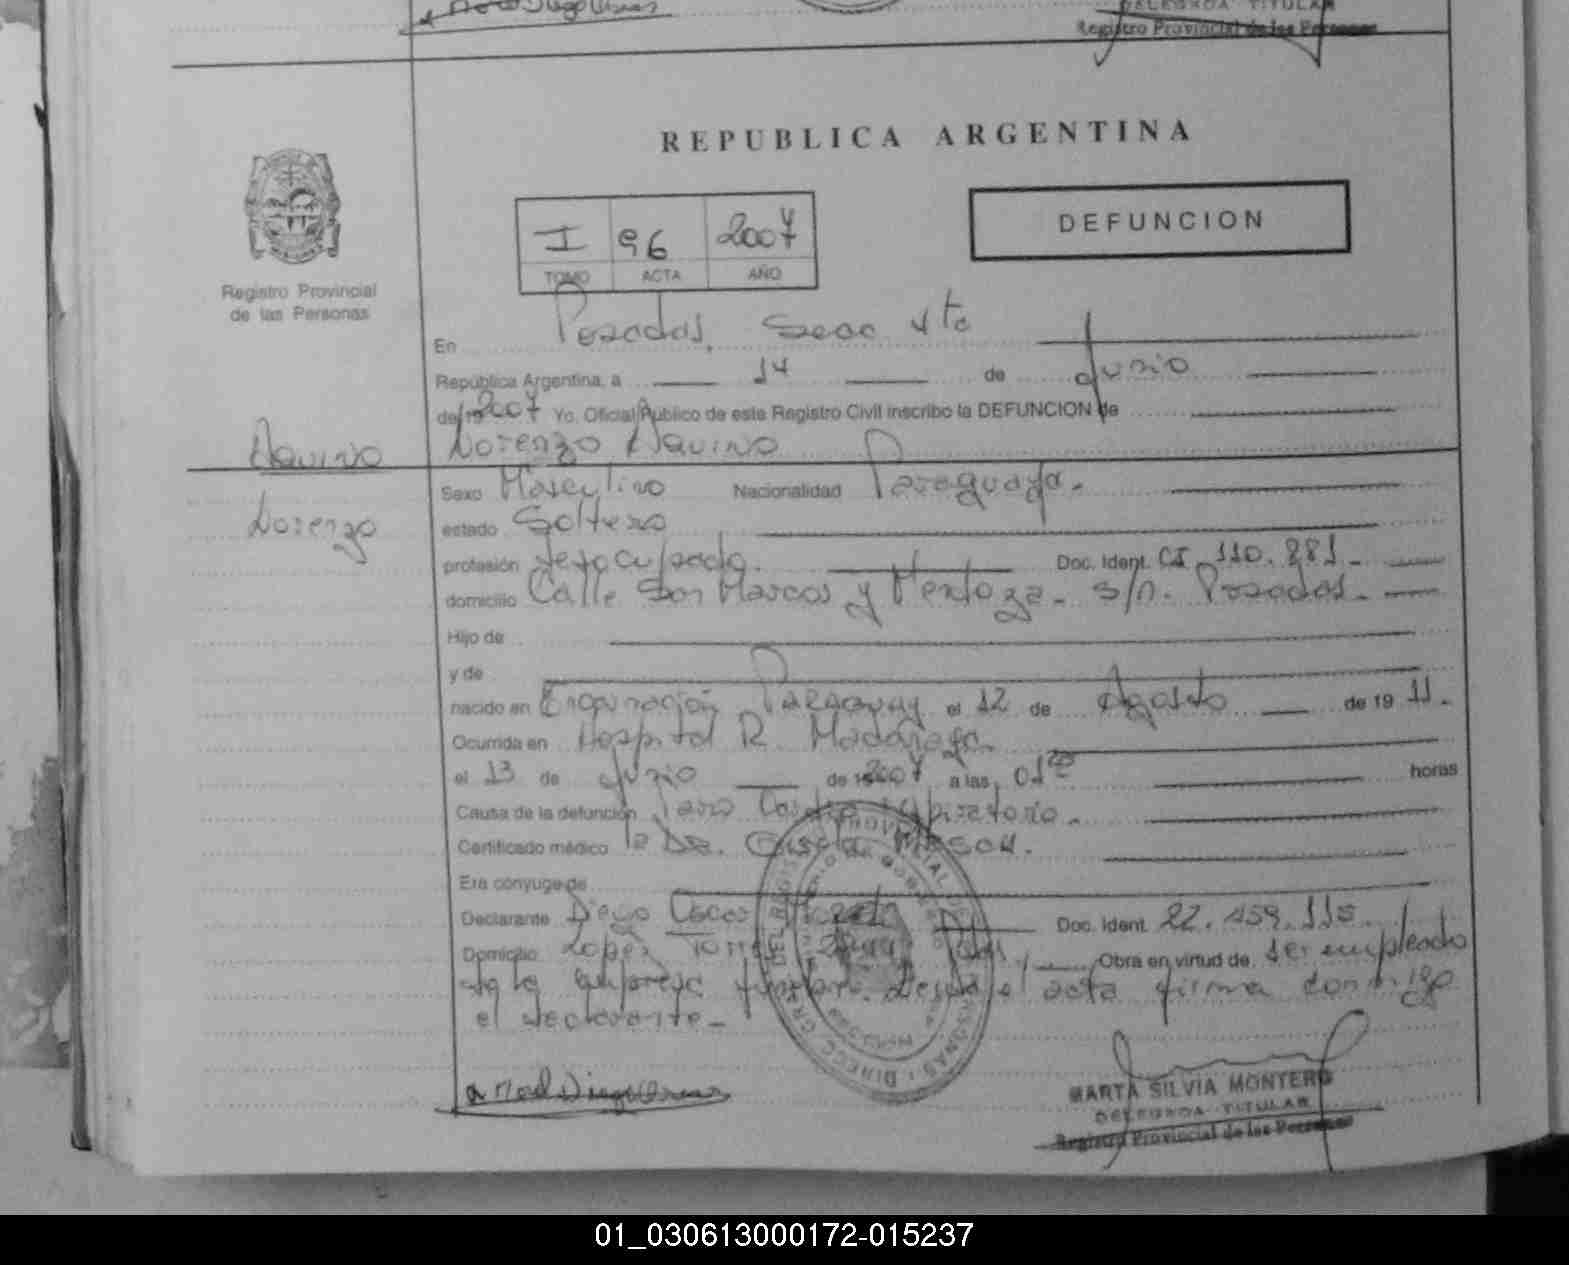 DELEGADA TITULAR
Registro Provincial de las Personas
REPUBLICA ARGENTINA
I 96 2007
TOMO ACTA AÑO
DEFUNCION
Registro Provincial
de las Personas
En Posadas, Secc. 4ta
República Argentina, a 14 de Junio
de 19 2007 Yo, Oficial Público de este Registro Civil inscribo la DEFUNCION de
Aquino Lorenzo Aquino
Sexo Masculino Nacionalidad Paraguaya.
Lorenzo
estado Soltero
profesión desocupado. Doc. Ident. CI. 110.281.
domicilio Calle San Marcos y Mendoza. s/n. Posadas.
Hijo de
y de
nacido en Encarnación Paraguay el 12 de Agosto de 19 11.
Ocurrida en Hospital R. Madariaga.
el 13 de Junio de 2007 a las 01 horas
Causa de la defunción Paro Cardio respiratorio.
Certificado médico la Dra. Gisela
Era cónyuge de
Declarante Diego Doc. Ident. 22.459.115.
Domicilio Lopez Torres Obra en virtud de ser empleado
de la empresa Leida el acta firma conmigo
el declarante.
MARTA SILVIA MONTERO
DELEGADA TITULAR
Registro Provincial de las Personas
01_030613000172-015237